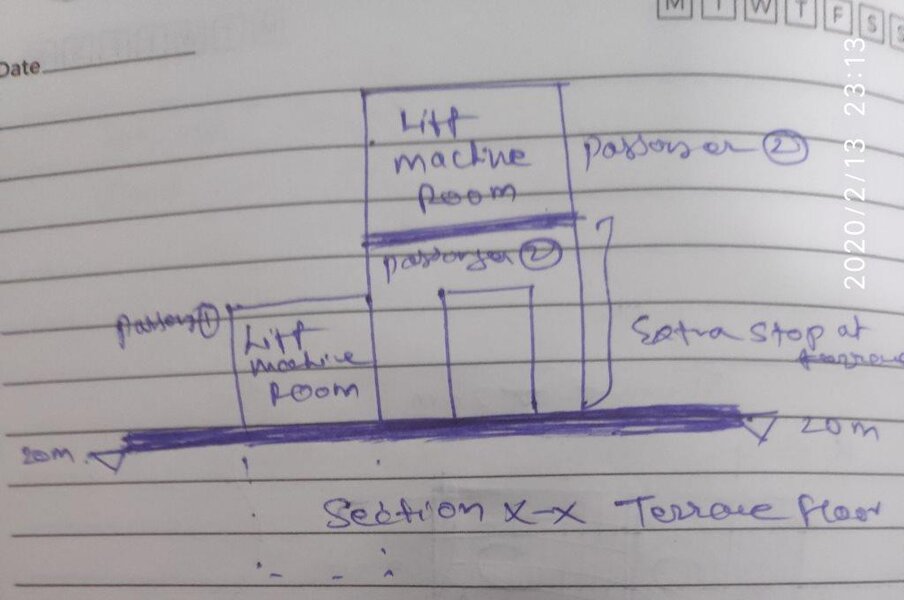 M T W T F S S
Date
2020/2/13 23:13
Lift
machine
Room
passenger 2
passenger 2
passeng 1
Lift
machine
Room
Extra stop at
20m
20m
Section X-X Terrace floor